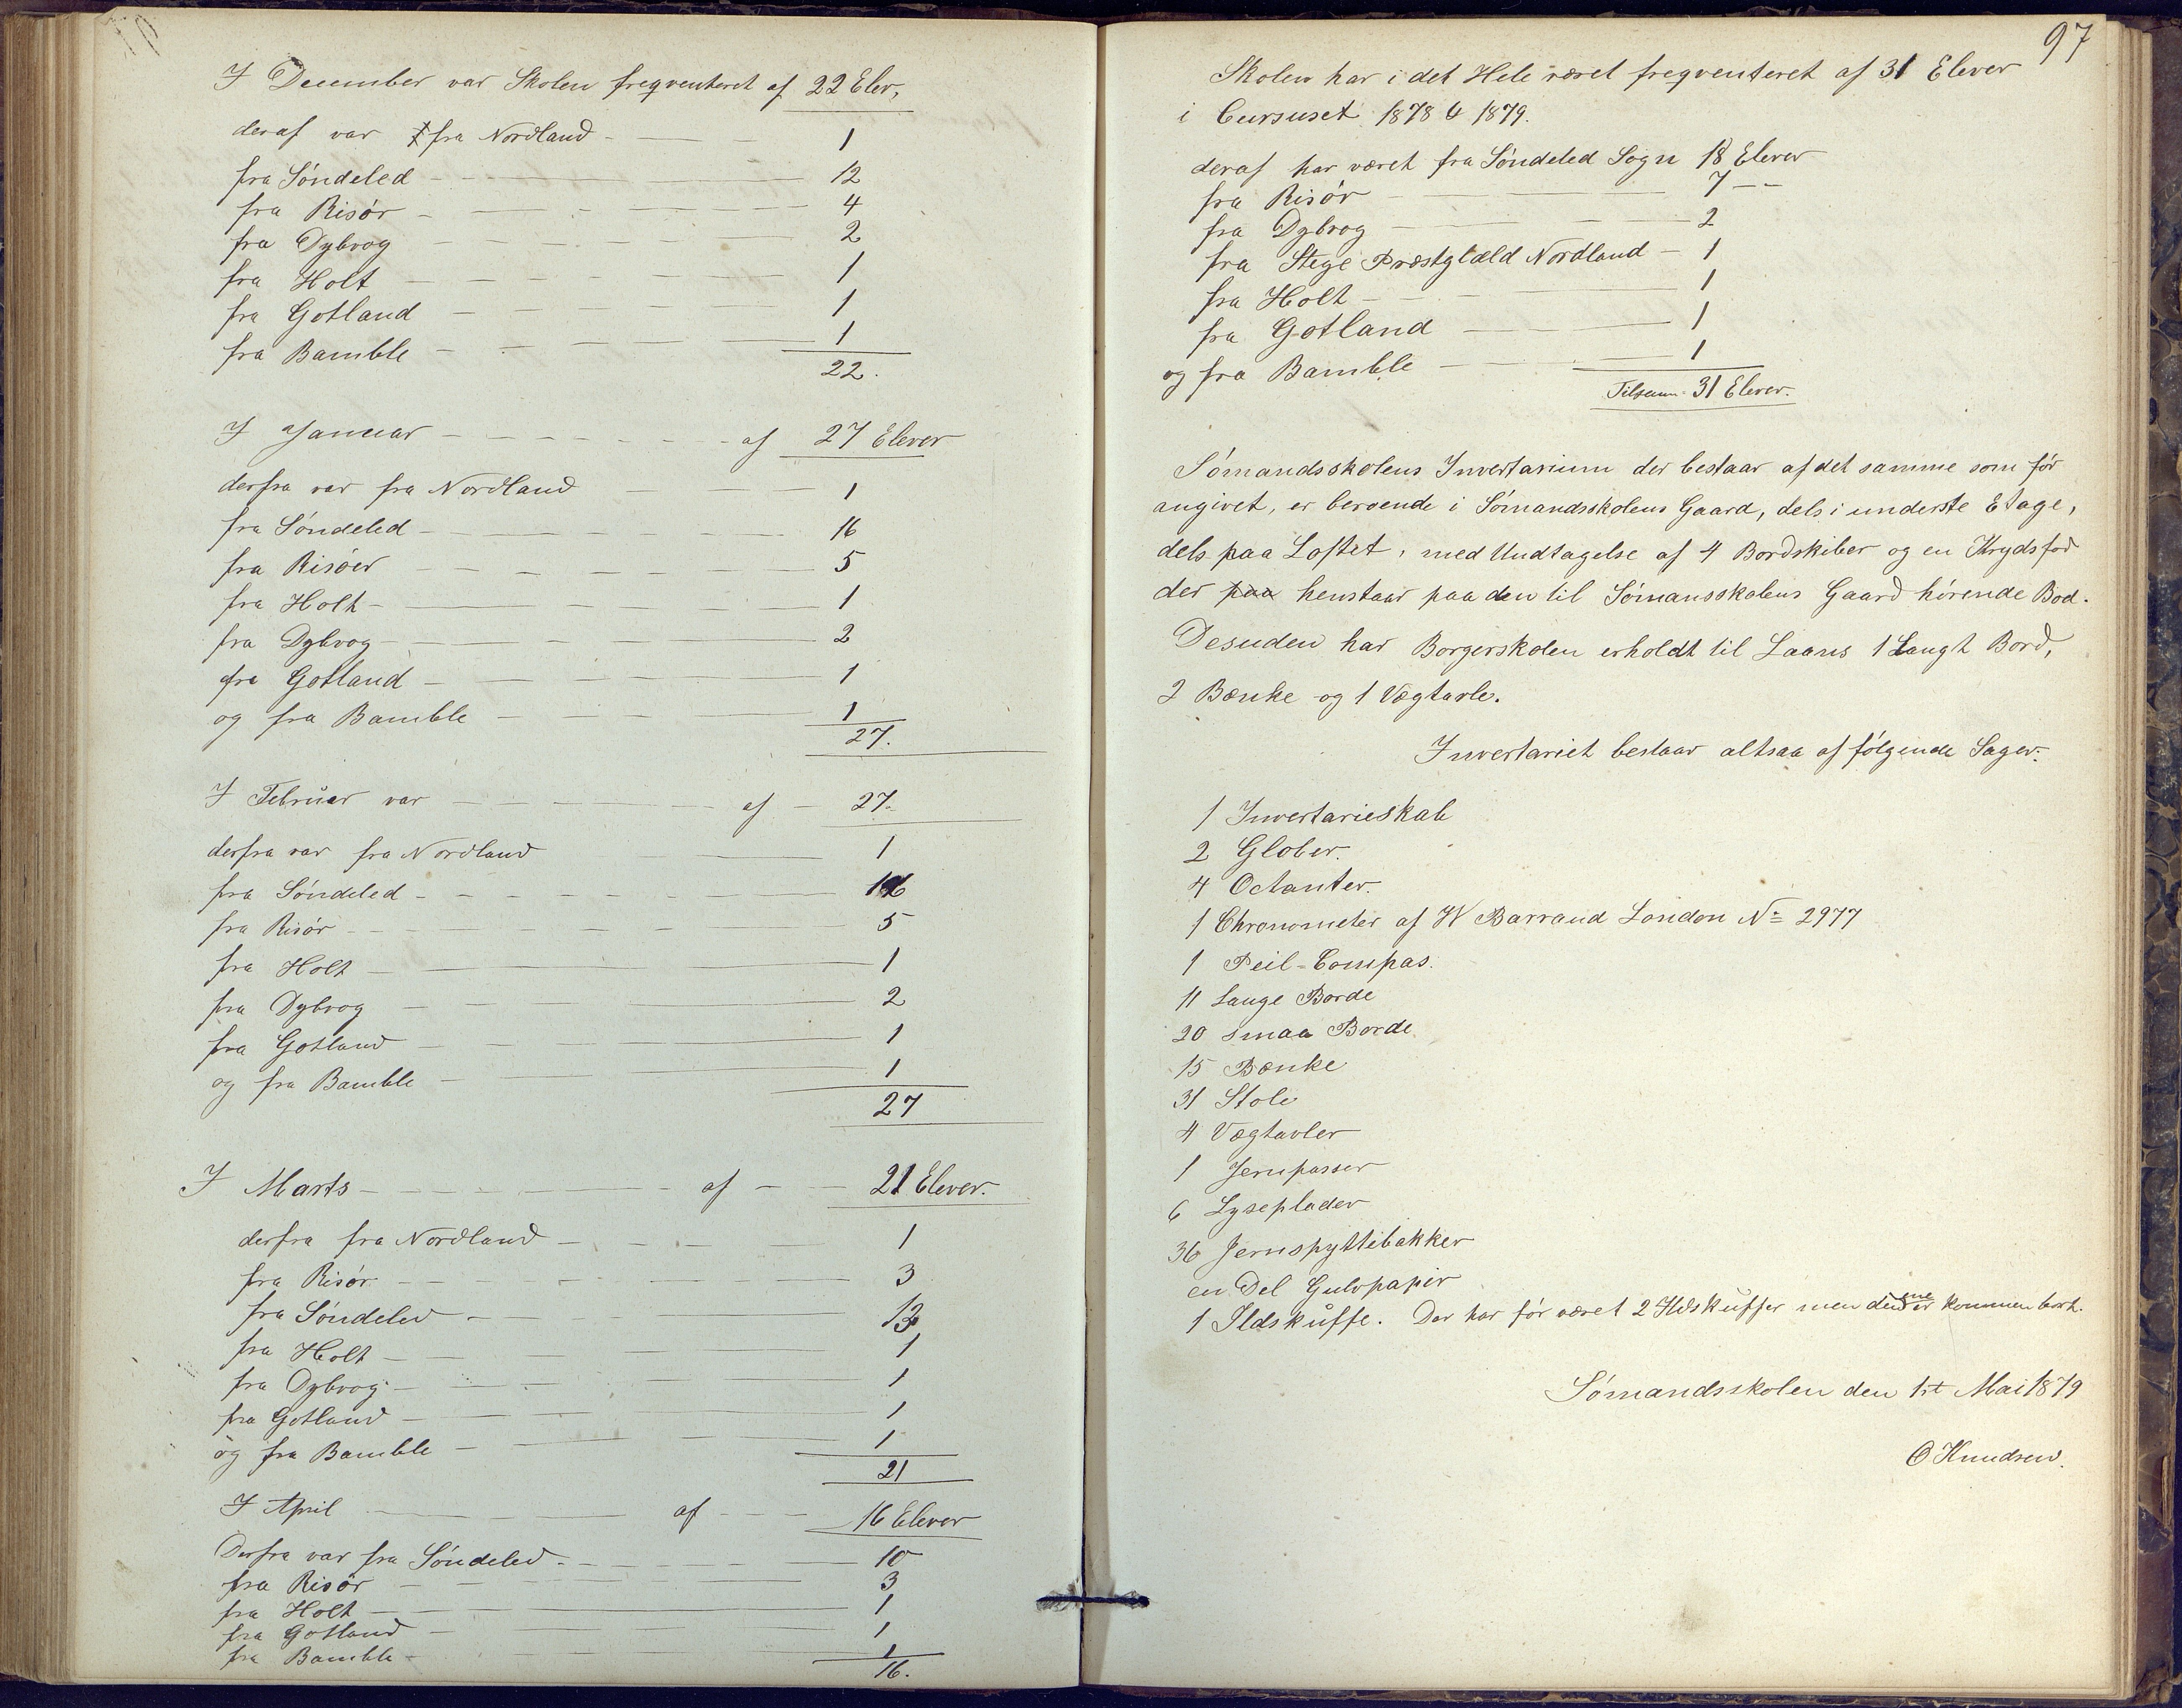 I December var Skolen freqventeret af 22 Elev,
deraf var fra Nordland - 1
fra Søndeled - 12
fra Risør - 4
fra Dybvog - 2
fra Holt - 1
fra Gotland - 1
fra Bamble - 1
22.
I Januar - af 27 Elever
derfra var fra Nordland - 1
fra Søndeled - 16
fra Risöer - 5
fra Holt - 1
fra Dybvog - 2
fra Gotland - 1
og fra Bamble - 1
27.
I Februar var - af - 27.
derfra var fra Nordland - 1
fra Søndeled - 16
fra Risør - 5
fra Holt - 1
fra Dybvog - 2
fra Gotland - 1
og fra Bamble - 1
27
I Marts - af - 21 Elever.
derfra fra Nordland - 1
fra Risør - 3
fra Søndeled - 13
fra Holt - 1
fra Dybvog - 1
fra Gotland - 1
og fra Bamble - 1
21
I April - af - 16 Elever
Derfra var fra Søndeled - 10
fra Risör - 3
fra Holt - 1
fra Gotland - 1
fra Bamble - 1
16.
97
Skolen har i det Hele været freqventeret af 31 Elever
i Cursuset 1878 & 1879.
deraf har været fra Søndeled Sogn 18 Elever
fra Risør - 7 --
fra Dybvog - 2
fra Stege Præstgiæld Nordland - 1
fra Holt - 1
fra Gotland - 1
og fra Bamble - 1
Tilsam- 31 Elever.
Sømandsskolens Invertarium der bestaar af det samme som før
angivet, er beroende i Sømandsskolens Gaard, dels i underste Etage,
dels paa Loftet, med Undtagelse af 4 Bordskiber og en Krydsfod
der paa henstaar paa den til Sømansskolens Gaard hørende Bod.
Desuden har Borgerskolen erholdt til Laans 1 Langt Bord,
2 Bænke og 1 Vægtavle.
Invertariet bestaar altsaa af følgende Sager:
1 Invertarieskab
2 Glober.
4 Octanter.
1 Chronometer af W Barraud London No 2977
1 Peil-Compas.
11 Lange Borde
20 smaa Borde
15 Bænke
31 Stole
4 Vægtavler
1 Jernpasser
6 Lyseplader
36 Jernspyttebakker
en Del Gulvpapir
1 Ildskuffe. Der har før været 2 Ildskuffer men den ene er kommen bort.
Sømandsskolen den 1st Mai 1879
O Knudsen.